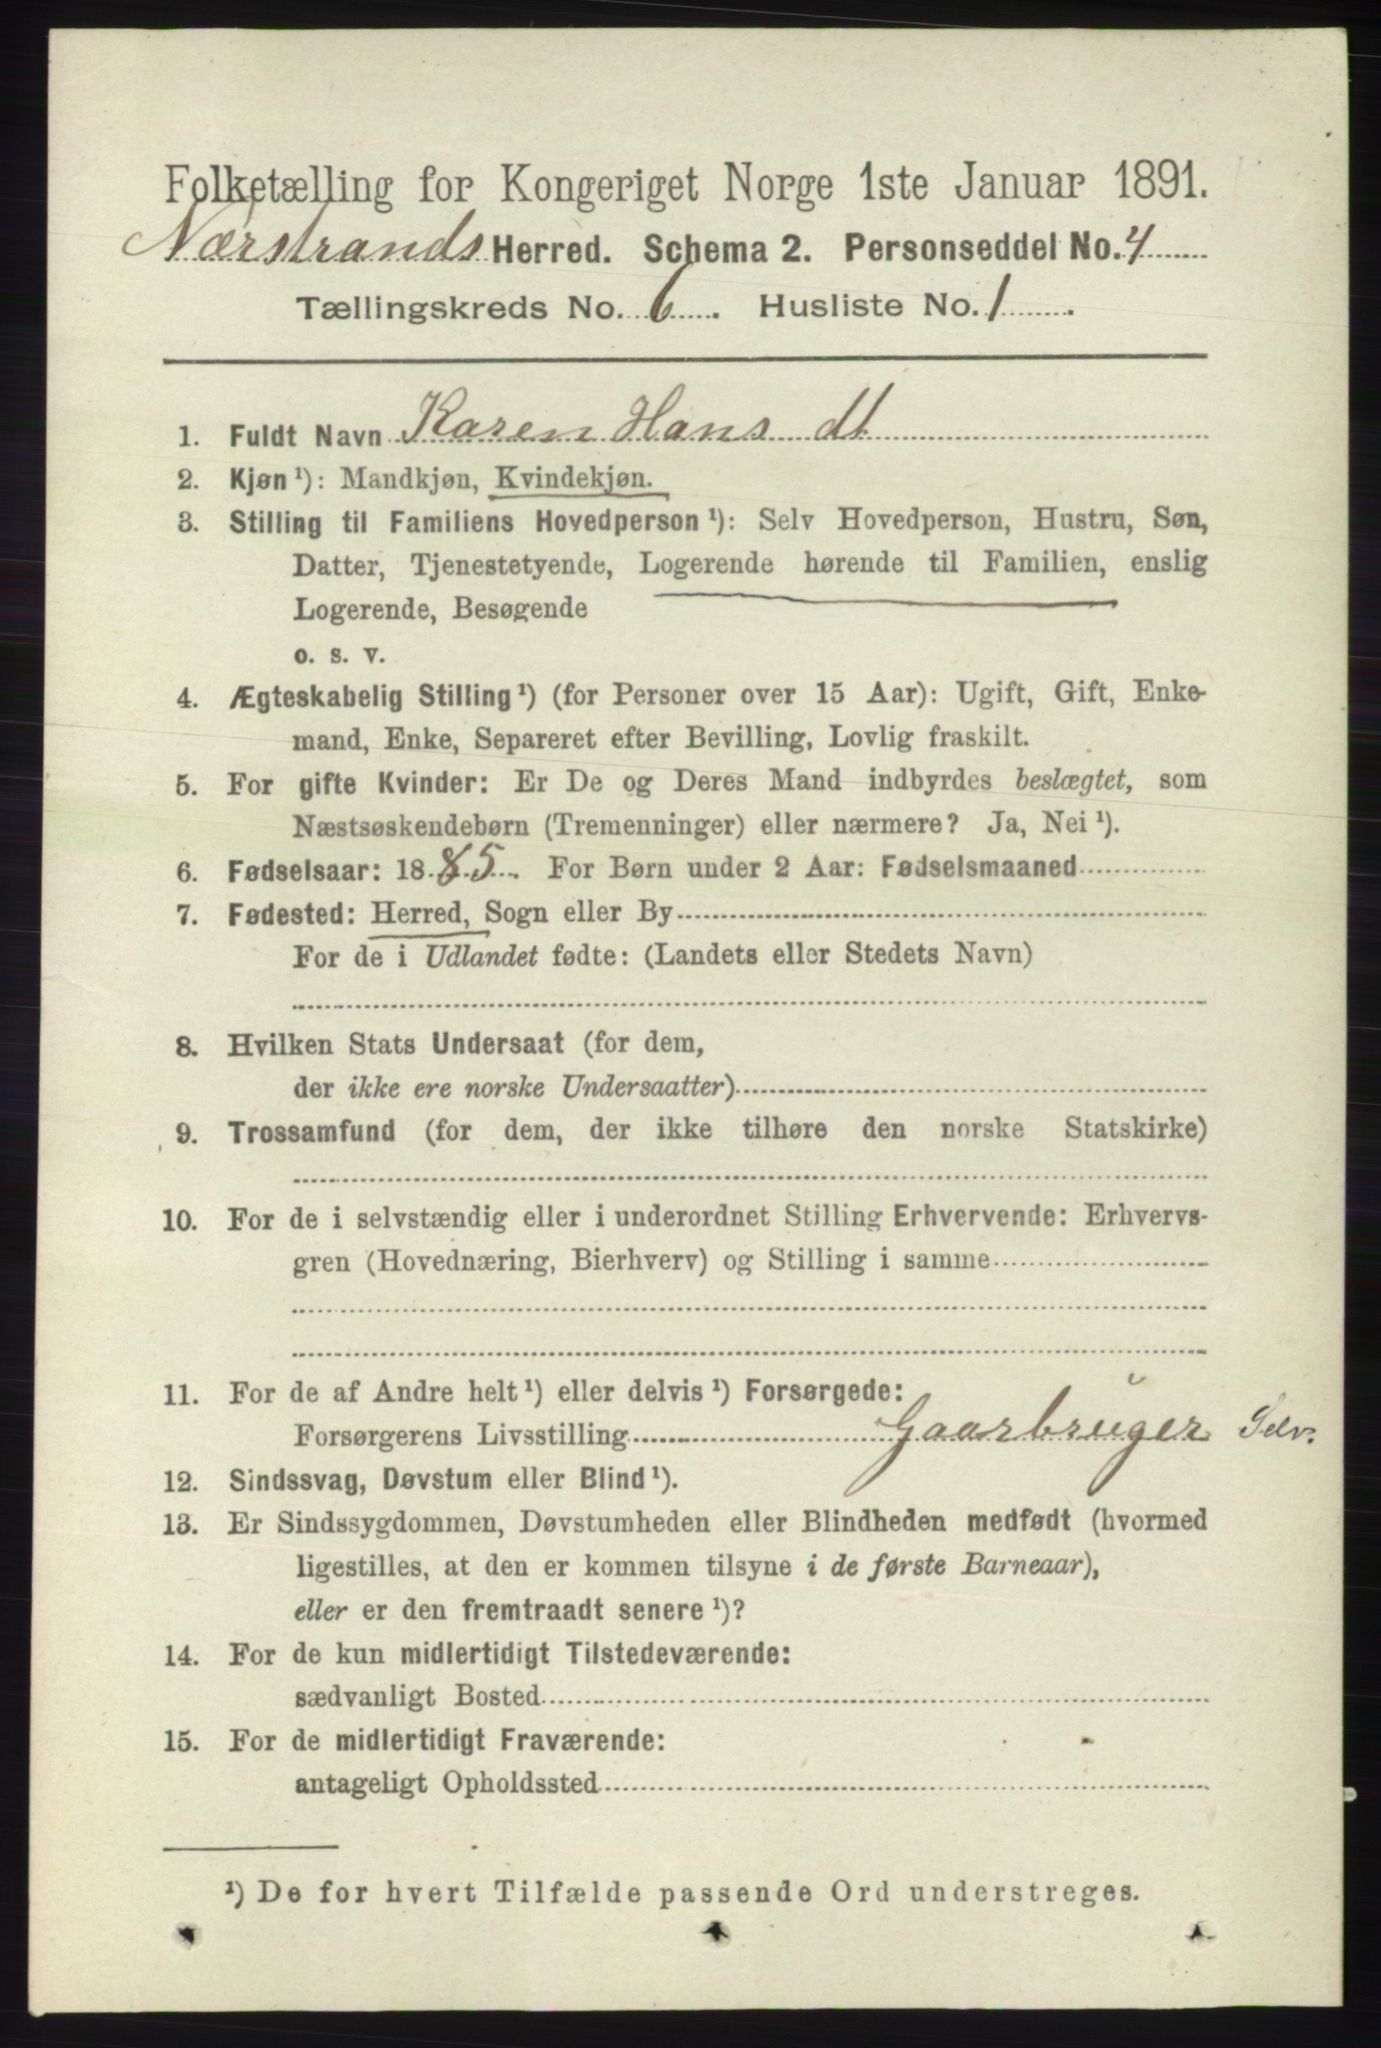 Folketælling for Kongeriget Norge 1ste Januar 1891.
Nærstrands Herred. Schema 2. Personseddel No. 4
Tællingskreds No. 6. Husliste No. 1.
1. Fuldt Navn Karen Hans dt
2. Kjøn ¹): Mandkjøn, Kvindekjøn.
3. Stilling til Familiens Hovedperson ¹): Selv Hovedperson, Hustru, Søn,
Datter, Tjenestetyende, Logerende hørende til Familien, enslig
Logerende, Besøgende
o. s. v.
4. Ægteskabelig Stilling ¹) (for Personer over 15 Aar): Ugift, Gift, Enke-
mand, Enke, Separeret efter Bevilling, Lovlig fraskilt.
5. For gifte Kvinder: Er De og Deres Mand indbyrdes beslægtet, som
Næstsøskendebørn (Tremenninger) eller nærmere? Ja, Nei ¹).
6. Fødselsaar: 1885. For Børn under 2 Aar: Fødselsmaaned
7. Fødested: Herred, Sogn eller By
For de i Udlandet fødte: (Landets eller Stedets Navn)
8. Hvilken Stats Undersaat (for dem,
der ikke ere norske Undersaatter)
9. Trossamfund (for dem, der ikke tilhøre den norske Statskirke)
10. For de i selvstændig eller i underordnet Stilling Erhvervende: Erhvervs-
gren (Hovednæring, Bierhverv) og Stilling i samme
11. For de af Andre helt ¹) eller delvis ¹) Forsørgede:
Forsørgerens Livsstilling Gaarbruger Selv.
12. Sindssvag, Døvstum eller Blind ¹).
13. Er Sindssygdommen, Døvstumheden eller Blindheden medfødt (hvormed
ligestilles, at den er kommen tilsyne i de første Barneaar),
eller er den fremtraadt senere ¹)?
14. For de kun midlertidigt Tilstedeværende:
sædvanligt Bosted
15. For de midlertidigt Fraværende:
antageligt Opholdssted
¹) De for hvert Tilfælde passende Ord understreges.